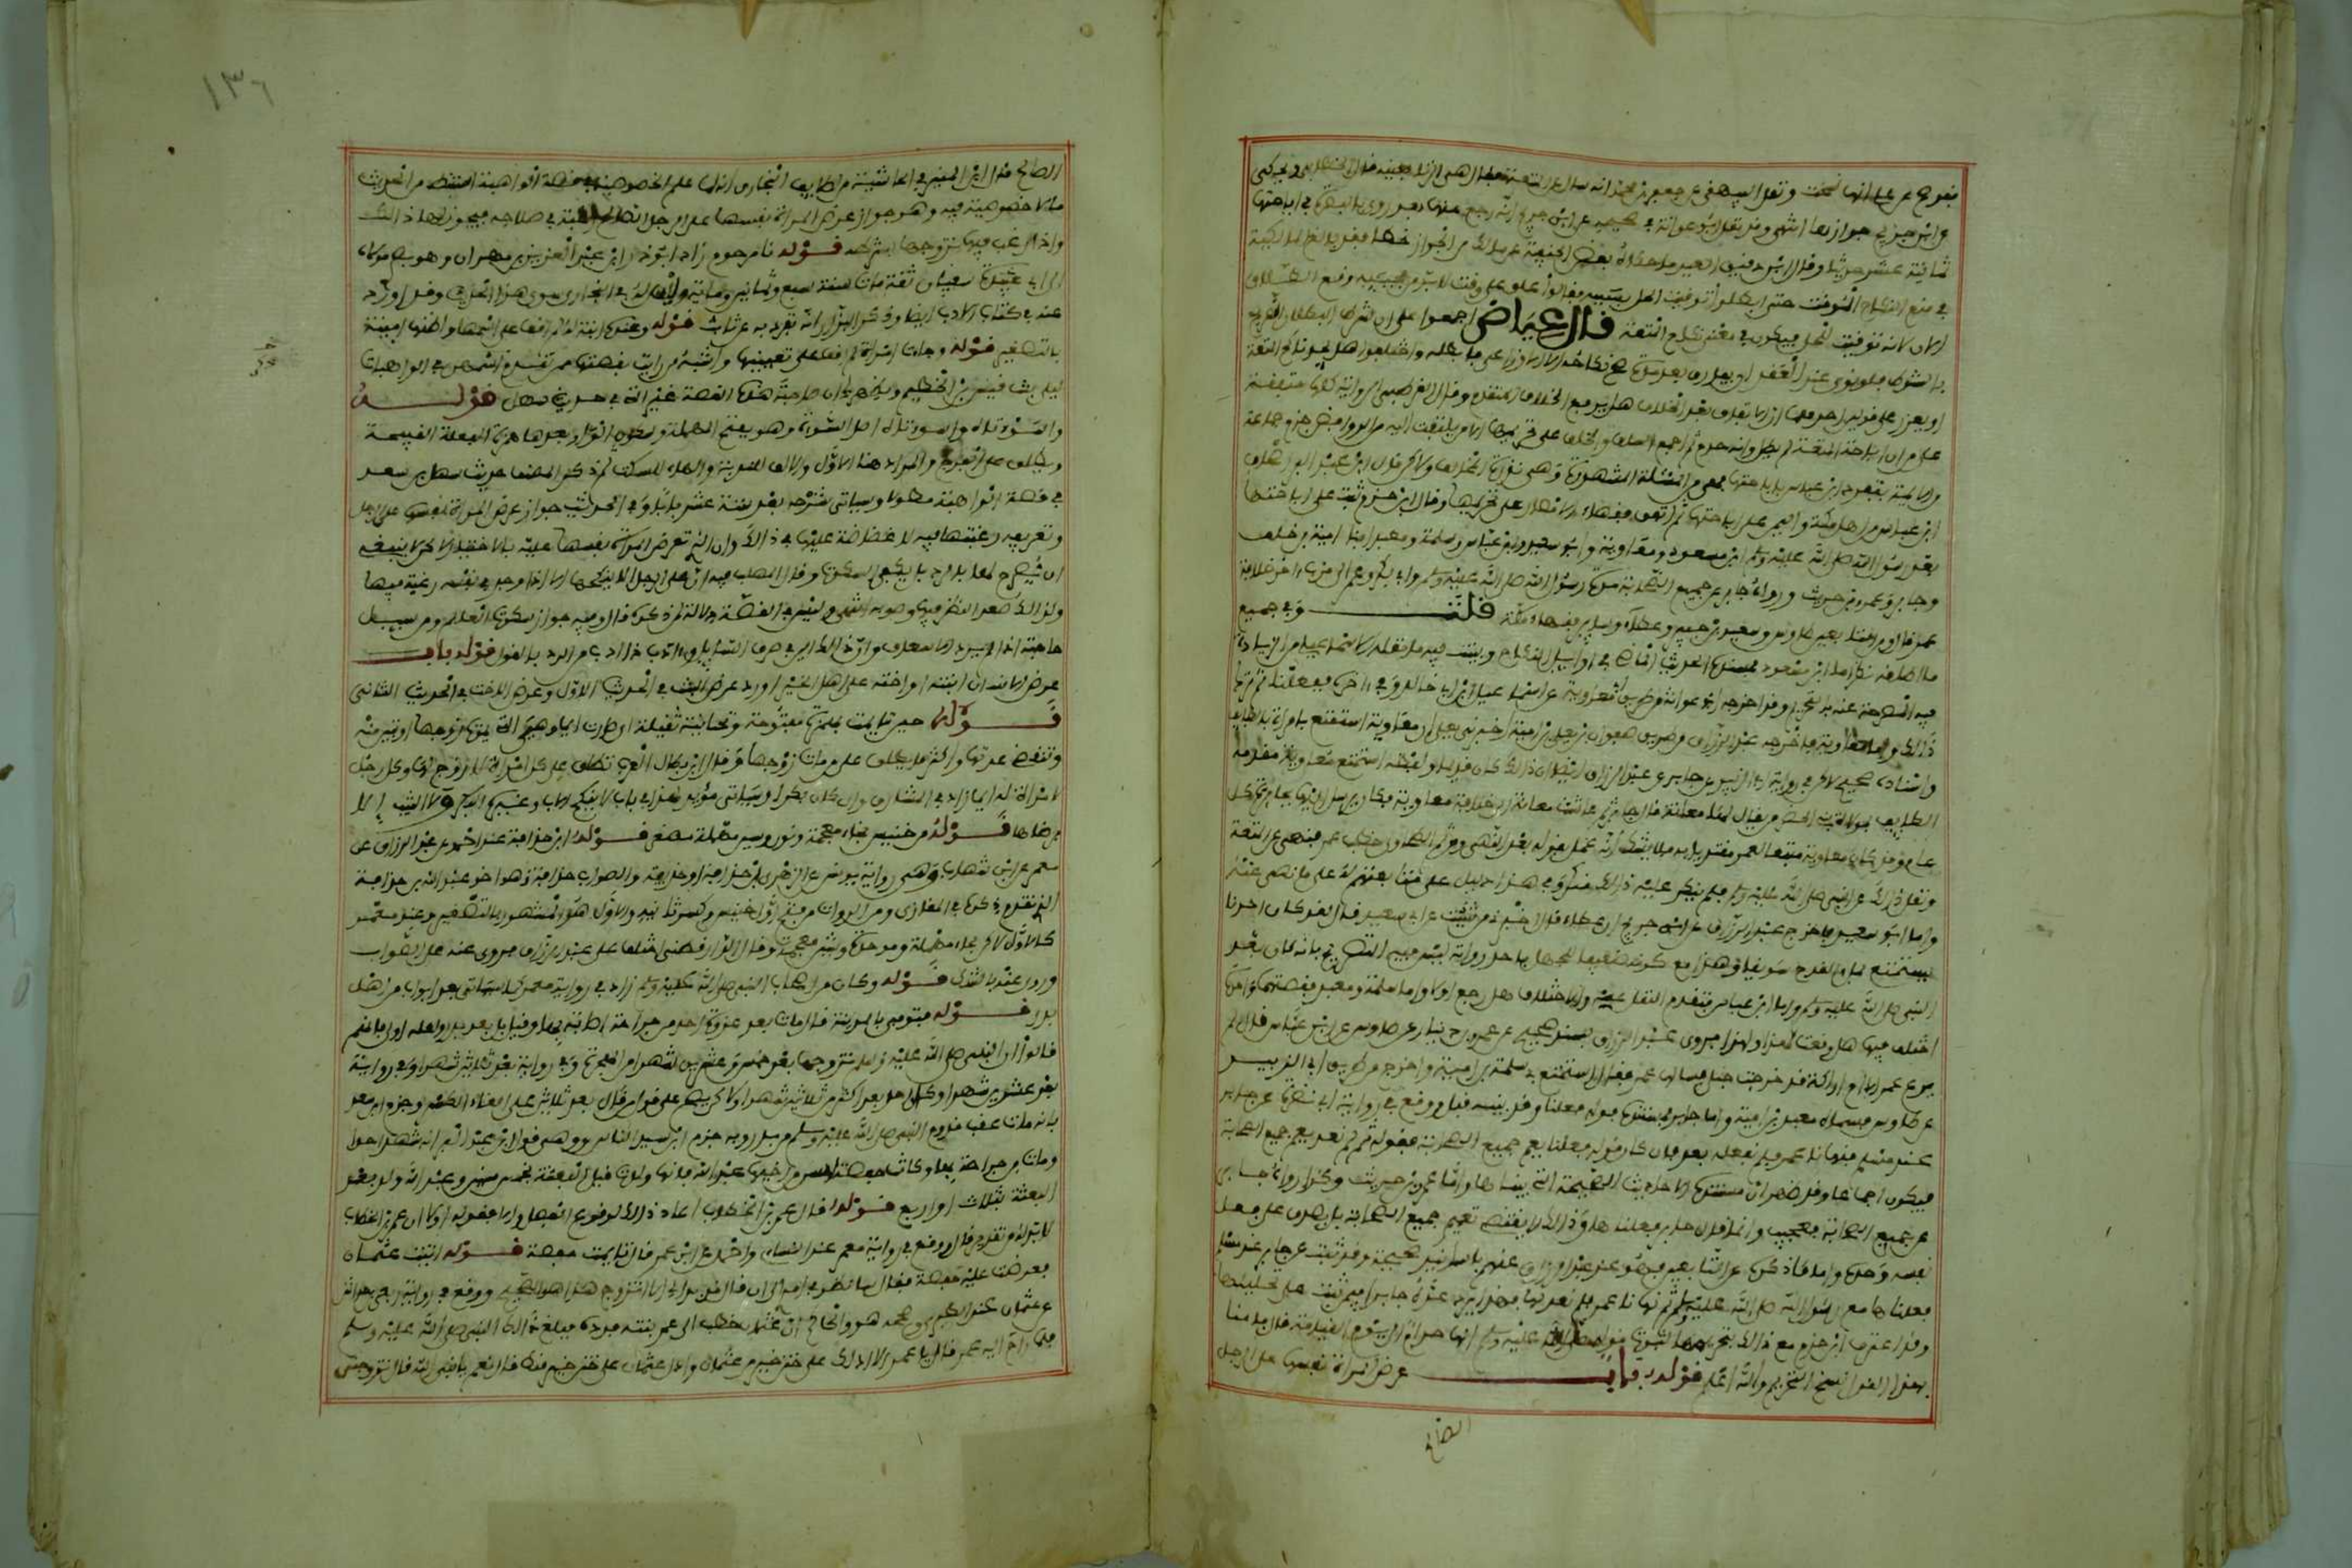 فقد صح عن علي أنها نسخت ونقل البيهقي عن جعفر بن محمد أنه سئل عن المتعة فقال هي الزنا بعينه قال الخطابي ويحكى
عن ابن جريج جوازها انتهى وقد نقل أبو عوانة في صحيحه عن ابن جريج أنه رجع عنها بعد أن روى بالبصرة في إباحتها
ثمانية عشر حديثا وقال ابن دقيق العيد ما حكاه بعض الحنفية عن مالك من الجواز خطأ فقد بالغ المالكية
في منع النكاح المؤقت حتى أبطلوا توقيت الحل بسببه فقالوا لو علق على وقت لا بد من مجيئه وقع الطلاق
الآن لأنه توقيت للحل فيكون في معنى نكاح المتعة قال عياض أجمعوا على أن شرط البطلان التصريح
بالشرط فلو نوى عند العقد أن يفارق بعد مدة صح نكاحه إلا الأوزاعي فأبطله واختلفوا هل يحد ناكح المتعة
أو يعزر على قولين أحدهما أن الاتفاق بعد الخلاف هل يرفع الخلاف المتقدم وقال القرطبي الروايات كلها متفقة
على أن زمن إباحة المتعة لم يطل وأنه حرم ثم أجمع السلف والخلف على تحريمها إلا من لا يلتفت إليه من الروافض وجزم جماعة
من الأئمة بتفرد ابن عباس بإباحتها فهي من المسئلة المشهورة وهي ندرة المخالف ولكن قال ابن عبد البر أصحاب
ابن عباس من أهل مكة واليمن على إباحتها ثم اتفق فقهاء الأمصار على تحريمها وقال ابن حزم ثبت على إباحتها
بعد رسول الله صلى الله عليه وسلم ابن مسعود ومعاوية وأبو سعيد وابن عباس وسلمة ومعبد ابنا أمية بن خلف
وجابر وعمرو بن حريث ورواه جابر عن جميع الصحابة مدة رسول الله صلى الله عليه وسلم وأبي بكر وعمر إلى قرب آخر خلافة
عمر قال ومن التابعين طاوس وسعيد بن جبير وعطاء وسائر فقهاء مكة قلت وفي جميع
ما أطلقه نظر أما ابن مسعود فمستنده الحديث الماضي في أوائل النكاح وبينت فيه ما نقله الإسماعيلي من الزيادة
فيه المصرحة عنه بالتحريم وقد أخرجه أبو عوانة من طريق أبي معاوية عن إسماعيل بن أبي خالد وفي آخره ففعلنا ثم ترك
ذلك وأما معاوية فأخرجه عبد الرزاق من طريق صفوان بن يعلى بن أمية أخبرني يعلى أن معاوية استمتع بامرأة بالطائف
وإسناده صحيح لكن في رواية أبي الزبير عن جابر عن عبد الرزاق أيضا أن ذلك كان قديما ولفظه استمتع معاوية مقدمه
الطائف بمولاة لبني الحضرمي يقال لها معانة قال جابر ثم عاشت معانة إلى خلافة معاوية فكان يرسل إليها بجائزة كل
عام وقد كان معاوية متبعا لعمر مقتديا به فلا يشك أنه عمل بقوله بعد النهي ومن ثم قال الطحاوي خطب عمر فنهى عن المتعة
ونقل ذلك عن النبي صلى الله عليه وسلم فلم ينكر عليه ذلك منكر وفي هذا دليل على متابعتهم له على ما نهى عنه
وأما أبو سعيد فأخرج عبد الرزاق عن ابن جريج أن عطاء قال أخبرني من شئت عن أبي سعيد قال لقد كان أحدنا
يستمتع بملء القدح سويقا وهذا مع كونه ضعيفا للجهل بأحد رواته ليس فيه التصريح بأنه كان بعد
النبي صلى الله عليه وسلم وأما ابن عباس فتقدم النقل عنه والاختلاف هل رجع أولا وأما سلمة ومعبد فقصتهما واحدة
اختلف فيها هل وقعت لهذا أو لهذا فروى عبد الرزاق بسند صحيح عن عمرو بن دينار عن طاوس عن ابن عباس قال لم
يرع عمر إلا أم أراكة قد خرجت حبلى فسألها عمر فقالت استمتع بي سلمة بن أمية وأخرج من طريق أبي الزبير
عن طاوس فسماه معبد بن أمية وأما جابر فمستنده قوله فعلناها وقد بينته قبل ووقع في رواية أبي نضرة عن جابر
عند مسلم فنهانا عمر فلم نفعله بعد فإن كان قوله فعلنا يعم جميع الصحابة فقوله ثم لم نعد يعم جميع الصحابة
فيكون إجماعا وقد ظهر أن مستنده الأحاديث الصحيحة التي بيناها وأما عمرو بن حريث وكذا رواية جابر
عن جميع الصحابة فعجيب وإنما قال جابر فعلناها وذلك لا يقتضي تعميم جميع الصحابة بل يصدق على فعل
نفسه وحده وأما ما ذكره عن التابعين فهو عند عبد الرزاق عنهم بأسانيد صحيحة وقد ثبت عن جابر عند مسلم
فعلناها مع رسول الله صلى الله عليه وسلم ثم نهانا عمر فلم نعد لها فهذا يرد عده جابرا فيمن ثبت على تحليلها
وقد اعترف ابن حزم مع ذلك بتحريمها لثبوت قوله صلى الله عليه وسلم إنها حرام إلى يوم القيامة قال فأمنا
بهذا القول نسخ التحريم والله أعلم قوله باب عرض المرأة نفسها على الرجل
الصالح
١٣٦
الصالح قال ابن المنير في الحاشية من لطائف البخاري أنه لما علم الخصوصية في قصة الواهبة استنبط من الحديث
ما لا خصوصية فيه وهو جواز عرض المرأة نفسها على الرجل الصالح رغبة في صلاحه فيجوز لها ذلك
وإذا رغب فيها تزوجها بشرطه قوله نا مرحوم زاد أبو ذر ابن عبد العزيز بن مهران وهو بصري مولى
آل أبي سفيان ثقة مات سنة سبع وثمانين ومائة وليس له في البخاري سوى هذا الحديث وقد أورده
عنه في كتاب الأدب أيضا وذكر البزار أنه تفرد به عن ثابت قوله وعنده ابنة له لم أقف على اسمها وأظنها أمينة
بالتصغير قوله وجاءت امرأة لم أقف على تعيينها وأشبه من رأيت بقصتها ممن تقدم اسمهن في الواهبات
ليلى بنت قيس بن الخطيم ويظهر لي أن صاحبة هذه القصة غير التي في حديث سهل قوله
واسوءتاه واسوءتاه أصل السوءة وهو بفتح المهملة وسكون الواو بعدها همزة الفعلة القبيحة
ويطلق على الفرج والمراد هنا الأول والألف للندبة والهاء للسكت ثم ذكر المصنف حديث سهل بن سعد
في قصة الواهبة مطولا وسيأتي شرحه بعد ستة عشر بابا وفي الحديث جواز عرض المرأة نفسها على الرجل
وتعريفه رغبتها فيه لا غضاضة عليها في ذلك وأن الذي تعرض المرأة نفسها عليه بالاختيار لكن لا ينبغي
أن يصرح لها بالرد بل يكفي السكوت وقال المهلب فيه أن على الرجل أن لا ينكحها إلا إذا وجد في نفسه رغبة فيها
ولذلك صعد النظر فيها وصوبه انتهى وليس في القصة دلالة لما ذكره قال وفيه جواز سكوت العالم ومن سئل
حاجة إذا لم يرد الإسعاف وأن ذلك ألين في صرف السائل وأأدب من الرد بالقول قوله باب
عرض الإنسان ابنته أو أخته على أهل الخير أورد عرض البنت في الحديث الأول وعرض الأخت في الحديث الثاني
قوله حين تأيمت بهمزة مفتوحة وتحتانية ثقيلة أي صارت أيما وهي التي يموت زوجها أو تبين منه
وتنقضي عدتها وأكثر ما يطلق على من مات زوجها وقال ابن بطال العرب تطلق على كل امرأة لا زوج لها وكل رجل
لا امرأة له أيما زاد في المشارق وإن كان بكرا وسيأتي مزيد لهذا في باب لا ينكح الأب وغيره البكر والثيب إلا
برضاها قوله من خنيس بخاء معجمة ونون وسين مهملة مصغر قوله ابن حذافة عند أحمد عن عبد الرزاق عن
معمر عن ابن شهاب وهي رواية يونس عن الزهري ابن حذافة أو حذيفة والصواب حذافة وهو أخو عبد الله بن حذافة
الذي تقدم ذكره في المغازي ومن الرواة من فتح أول خنيس وكسر ثانيه والأول هو المشهور بالتصغير وعند معمر
كالأول لكن بحاء مهملة وموحدة وشين معجمة وقال الدارقطني اختلف على عبد الرزاق فروى عنه على الصواب
وروى عنه بالشك قوله وكان من أصحاب النبي صلى الله عليه وسلم زاد في رواية معمر كما سيأتي بعد أبواب من أهل
بدر قوله فتوفي بالمدينة قالوا مات بعد غزوة أحد من جراحة أصابته بها وقيل بل بعد بدر ولعله أولى فإنهم
قالوا إن النبي صلى الله عليه وسلم تزوجها بعد خمسة وعشرين شهرا من الهجرة وفي رواية بعد ثلاثين شهرا وفي رواية
بعد عشرين شهرا وكانت أحد بعد أكثر من ثلاثين شهرا ولكنه يصح على قول من قال بعد ثلاثين على إلغاء الكسر وجزم ابن سعد
بأنه مات عقب قدوم النبي صلى الله عليه وسلم من بدر وبه جزم ابن سيد الناس وهو قول ابن عبد البر إنه شهد أحدا
ومات من جراحة بها وكانت حفصة أسن من أخيها عبد الله فإنها ولدت قبل البعثة بخمس سنين وعبد الله ولد بعد
البعثة بثلاث أو أربع قوله قال عمر بن الخطاب أعاد ذلك لوقوع الفصل وإلا فقوله أولا أن عمر بن الخطاب
لا بد له من تقدير قال ووقع في رواية معمر عند النسائي وأحمد عن ابن عمر قال تأيمت حفصة قوله أتيت عثمان
فعرضت عليه حفصة فقال سأنظر في أمري إلى أن قال قد بدا لي أن لا أتزوج هذا هو الصحيح ووقع في رواية ربعي بن حراش
عن عثمان عند الطبري وصححه هو والحاكم أن عثمان خطب إلى عمر بنته فرده فبلغ ذلك النبي صلى الله عليه وسلم
فلما راح إليه عمر قال يا عمر ألا أدلك على ختن خير من عثمان وأدل عثمان على ختن خير منك قال نعم يا نبي الله قال تزوجني